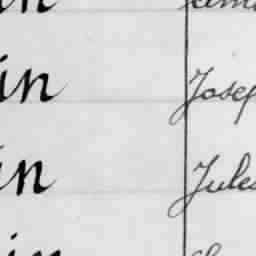 in
in Josep
in Jules
in